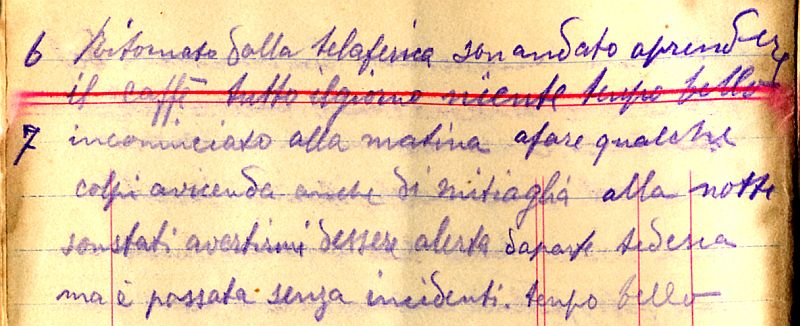 6 Ritornato dalla telaferica son andato aprendere
il caffè tutto il giorno niente tempo bello
7 incominciato alla matina afare qualche
colpi avicenda anche di mitiaglia alla notte
sonstati avertirmi dessere alerta daparte tedesca
ma è passata senza incidenti. tempo bello